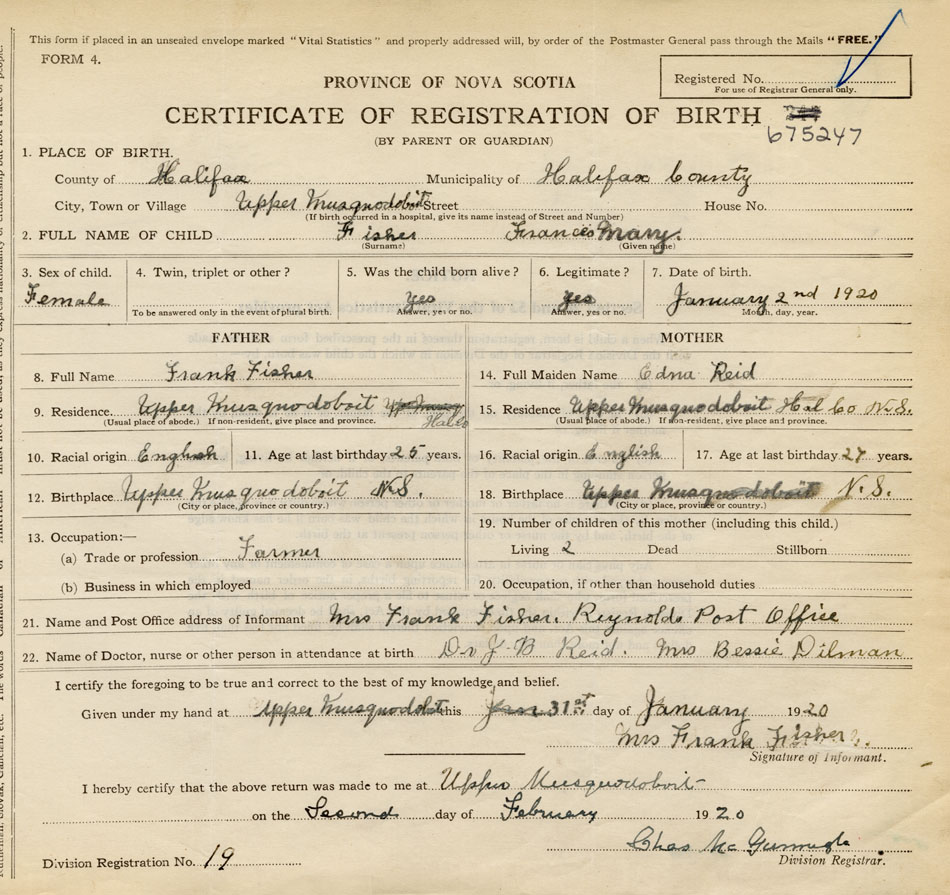 This form if placed in an unsealed envelope marked "Vital Statistics" and properly addressed will, by order of the Postmaster General pass through the Mails "FREE."
FORM 4.
Registered No.
For use of Registrar General only.
PROVINCE OF NOVA SCOTIA
CERTIFICATE OF REGISTRATION OF BIRTH
675247
(BY PARENT OR GUARDIAN)
1. PLACE OF BIRTH.
County of Halifax Municipality of Halifax County
City, Town or Village Upper Musquodoboit Street House No.
(If birth occurred in a hospital, give its name instead of Street and Number)
2. FULL NAME OF CHILD Fisher Frances Mary.
(Surname) (Given name)
3. Sex of child. 4. Twin, triplet or other? 5. Was the child born alive? 6. Legitimate? 7. Date of birth.
Female Yes Yes January 2nd 1920
To be answered only in the event of plural birth. Answer, yes or no. Answer, yes or no. Month, day, year.
FATHER MOTHER
8. Full Name Frank Fisher 14. Full Maiden Name Edna Reid
9. Residence. Upper Musquodoboit Hal Co 15. Residence Upper Musquodoboit Hal Co N.S.
(Usual place of abode.) If non-resident, give place and province. (Usual place of abode.) If non-resident, give place and province.
10. Racial origin English 11. Age at last birthday 25 years. 16. Racial origin English 17. Age at last birthday 27 years.
12. Birthplace Upper Musquodoboit N.S. 18. Birthplace Upper Musquodoboit N.S.
(City or place, province or country.) (City or place, province or country.)
13. Occupation:— 19. Number of children of this mother (including this child.)
(a) Trade or profession Farmer Living 2 Dead Stillborn
(b) Business in which employed 20. Occupation, if other than household duties
21. Name and Post Office address of Informant Mrs Frank Fisher. Reynolds Post Office
22. Name of Doctor, nurse or other person in attendance at birth Dr J. B Reid. Mrs Bessie Dilman
I certify the foregoing to be true and correct to the best of my knowledge and belief.
Given under my hand at Upper Musquodoboit this 31st day of January 1920
Mrs Frank Fisher.
Signature of Informant.
I hereby certify that the above return was made to me at Upper Musquodoboit
on the Second day of February 1920
Chas
Division Registration No. 19 Division Registrar.